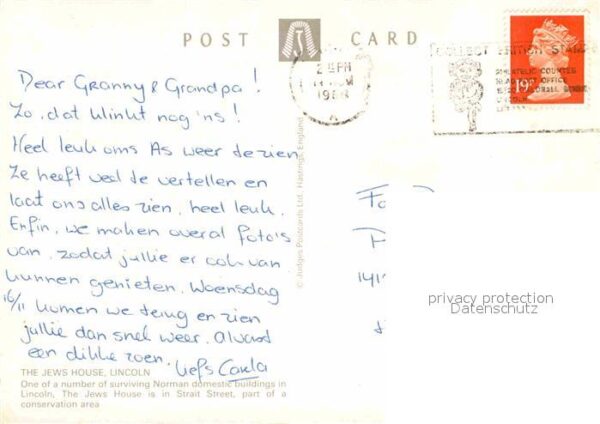 POST CARD
Dear Granny & Grandpa!
Zo, dat klinkt nog 'ns!
Heel leuk oms As weer te zien
Ze heeft veel te vertellen en
laat ons alles zien, heel leuk.
Enfin, we maken overal foto's
van, zodat jullie er ook van
kunnen genieten. Woensdag
16/11 komen we terug en zien
jullie dan snel weer. Alvast
een dikke zoen. Liefs Carla
THE JEWS HOUSE, LINCOLN
One of a number of surviving Norman domestic buildings in
Lincoln, The Jews House is in Strait Street, part of a
conservation area
© Judges Postcards Ltd, Hastings, England
PM
1988
COLLECT BRITISH STAMPS
PHILATELIC COUNTER
HEAD POST OFFICE
GUILDHALL
LINCOLN
19
privacy protection
Datenschutz